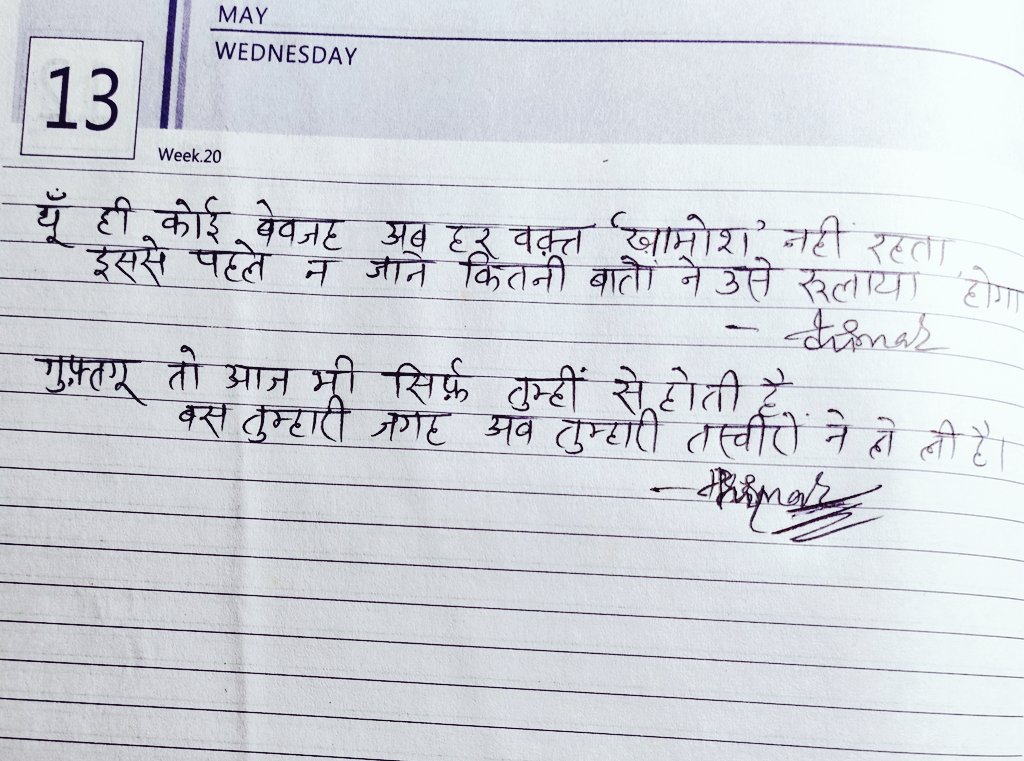 MAY
WEDNESDAY
13
Week.20
यूँ ही कोई बेवजह अब हर वक़्त 'ख़ामोश' नहीं रहता,
इससे पहले न जाने कितनी बातों ने उसे रूलाया होगा
गुफ़्तगू तो आज भी सिर्फ़ तुम्हीं से होती है
बस तुम्हारी जगह अब तुम्हारी तस्वीरों ने ले ली है।